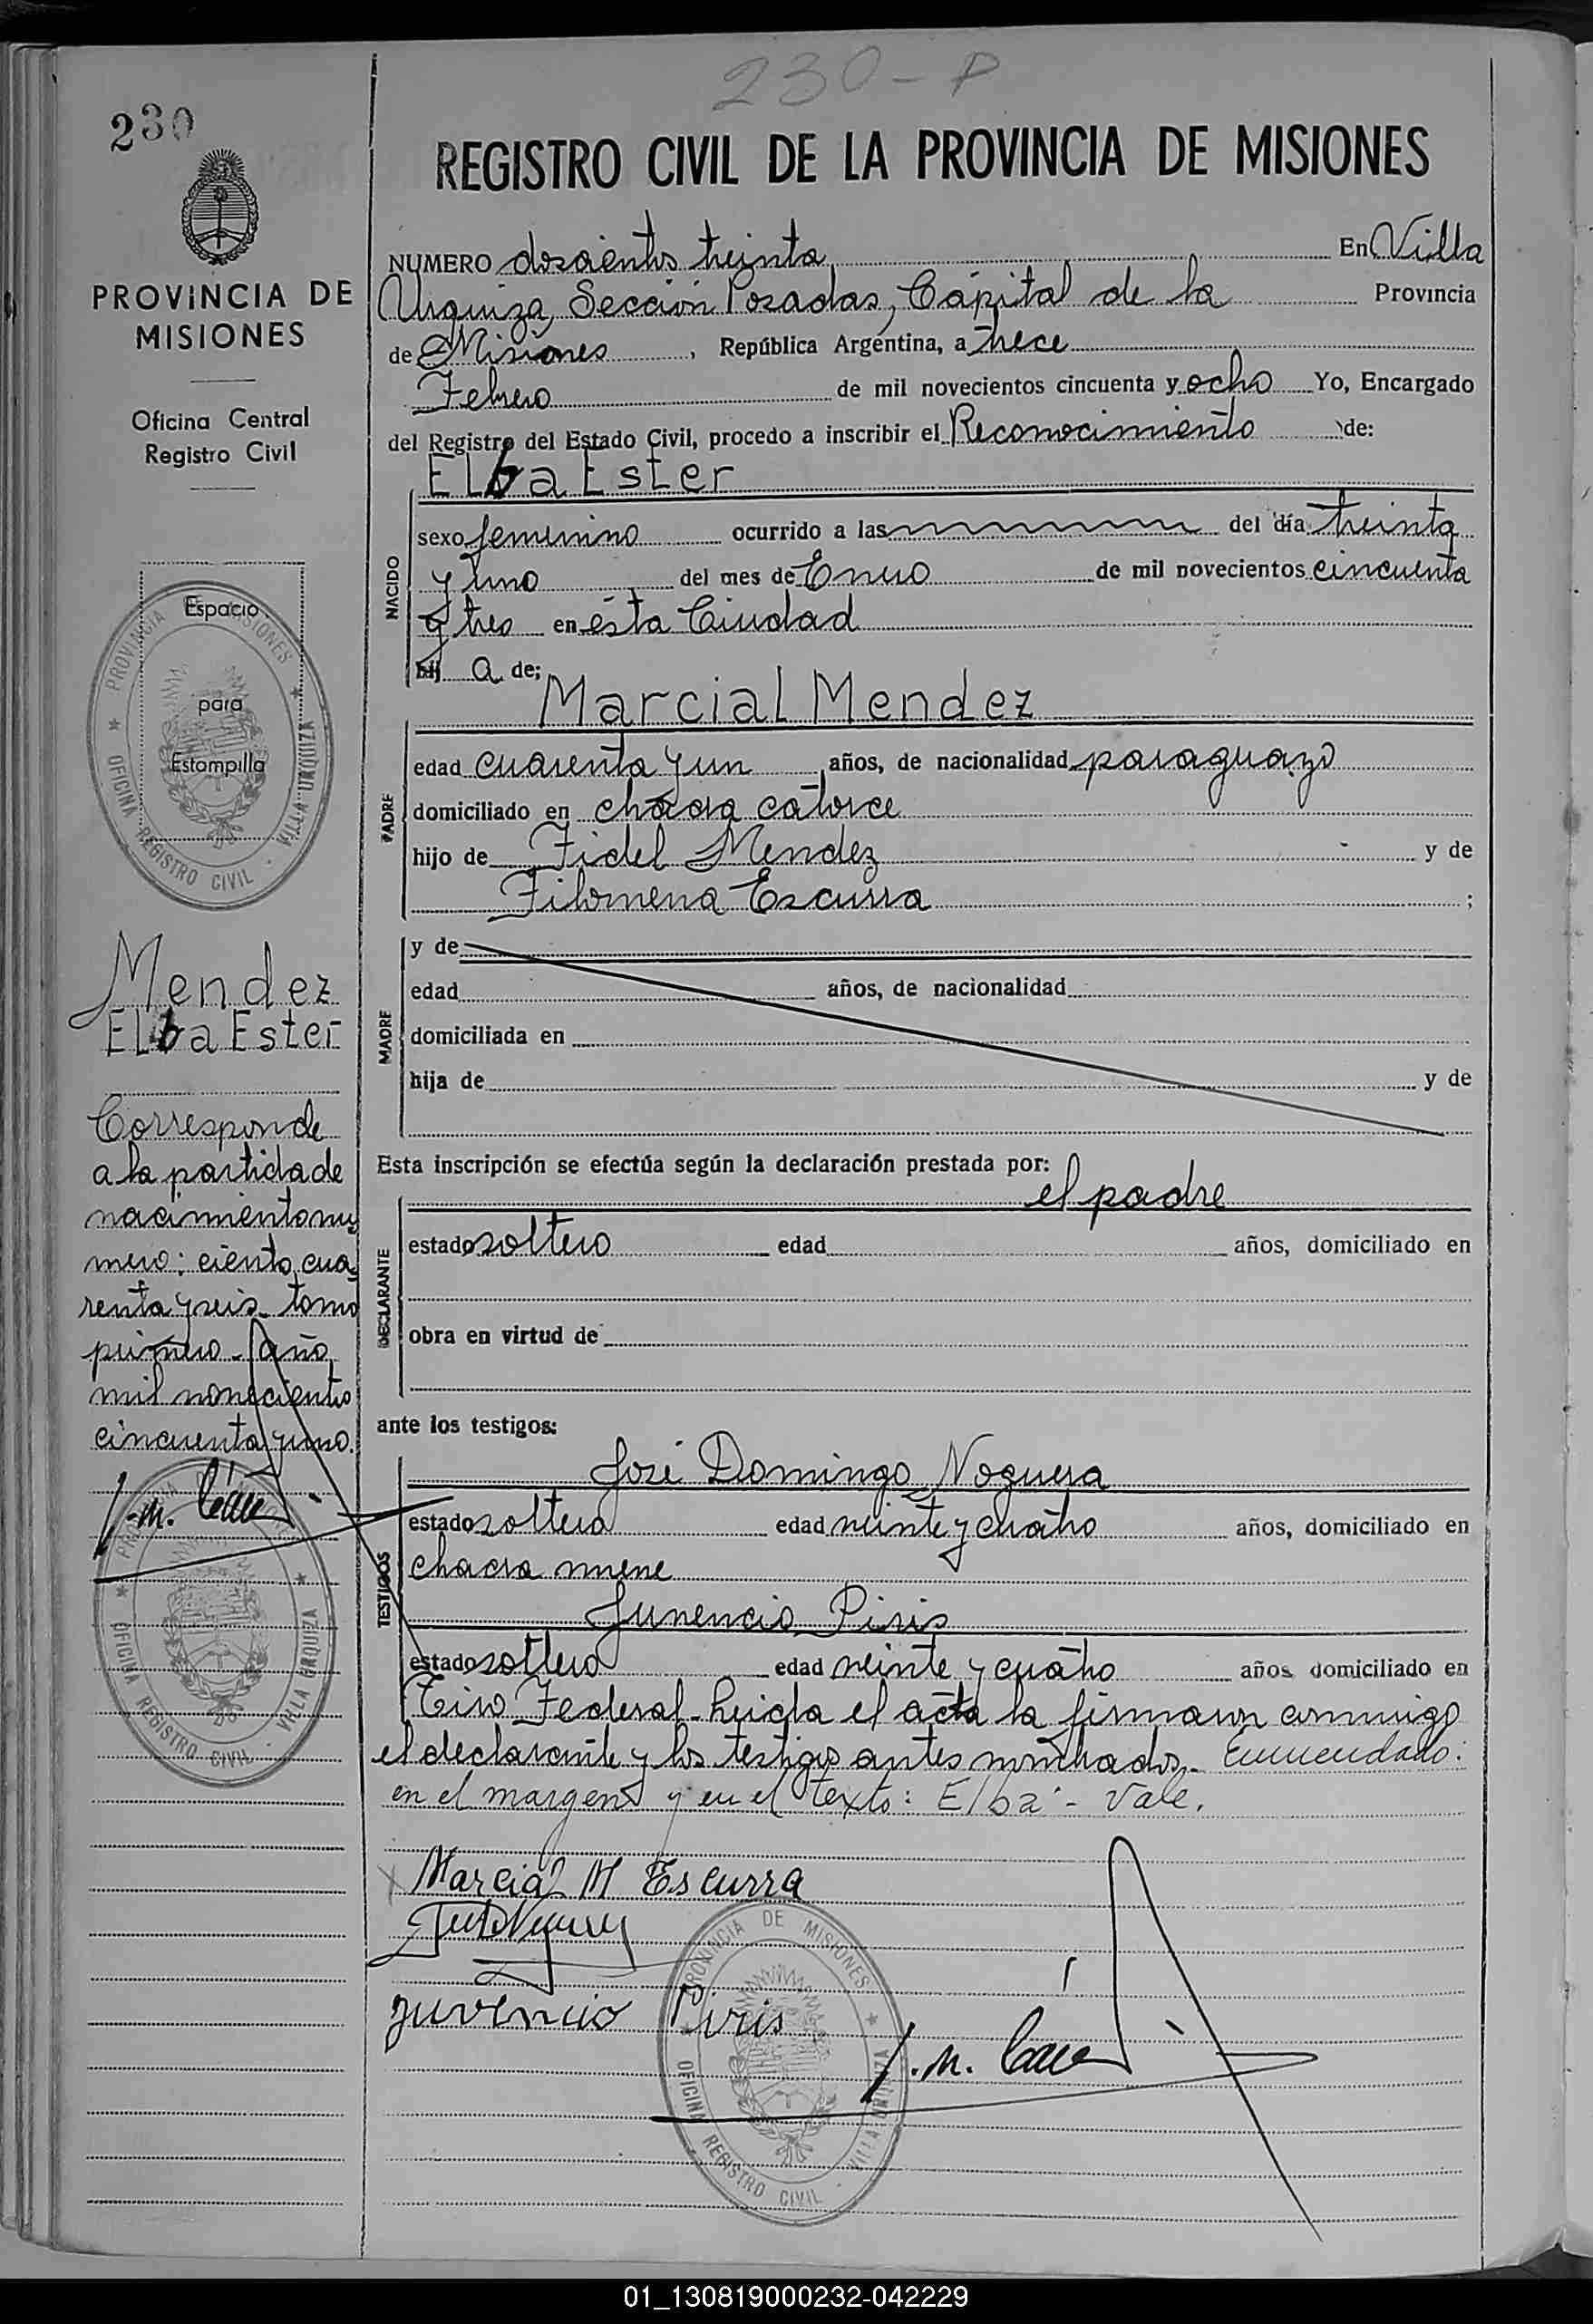 230-P
230
REGISTRO CIVIL DE LA PROVINCIA DE MISIONES
PROVINCIA DE
MISIONES
Oficina Central
Registro Civil
Espacio
para
Estampilla
PROVINCIA DE MISIONES
OFICINA REGISTRO CIVIL - VILLA URQUIZA
Mendez
Elba Ester
Corresponde
a la partida de
nacimiento nu
mero: ciento cua
renta y seis - tomo
primero - año
mil nonecientos
cincuenta y uno.
PROVINCIA DE MISIONES
OFICINA REGISTRO CIVIL - VILLA URQUIZA
NUMERO doscientos treinta En Villa
Urquiza, Sección Posadas, Capital de la Provincia
de Misiones, República Argentina, a trece
Febrero de mil novecientos cincuenta y ocho Yo, Encargado
del Registro del Estado Civil, procedo a inscribir el Reconocimiento de:
Elba Ester
NACIDO
sexo femenino ocurrido a las del día treinta
y uno del mes de Enero de mil novecientos cincuenta
y tres en ésta Ciudad
hij a de;
Marcial Mendez
PADRE
edad cuarenta y un años, de nacionalidad paraguayo
domiciliado en chacra catorce
hijo de Fidel Mendez y de
Filomena Escurra ;
MADRE
y de
edad años, de nacionalidad
domiciliada en
hija de y de
Esta inscripción se efectúa según la declaración prestada por:
el padre
DECLARANTE
estado soltero edad años, domiciliado en
obra en virtud de
ante los testigos:
TESTIGOS
José Domingo Noguera
estado soltero edad veinte y cuatro años, domiciliado en
chacra nueve
Juvencio Piris
estado soltero edad veinte y cuatro años domiciliado en
Tiro Federal - leída el acta la firmaron conmigo
el declarante y los testigos antes nombrados - Enmendado:
en el margen y en el texto: Elba - Vale.
Marcial M Escurra
Juvencio Piris
PROVINCIA DE MISIONES
OFICINA REGISTRO CIVIL - VILLA URQUIZA
01_130819000232-042229